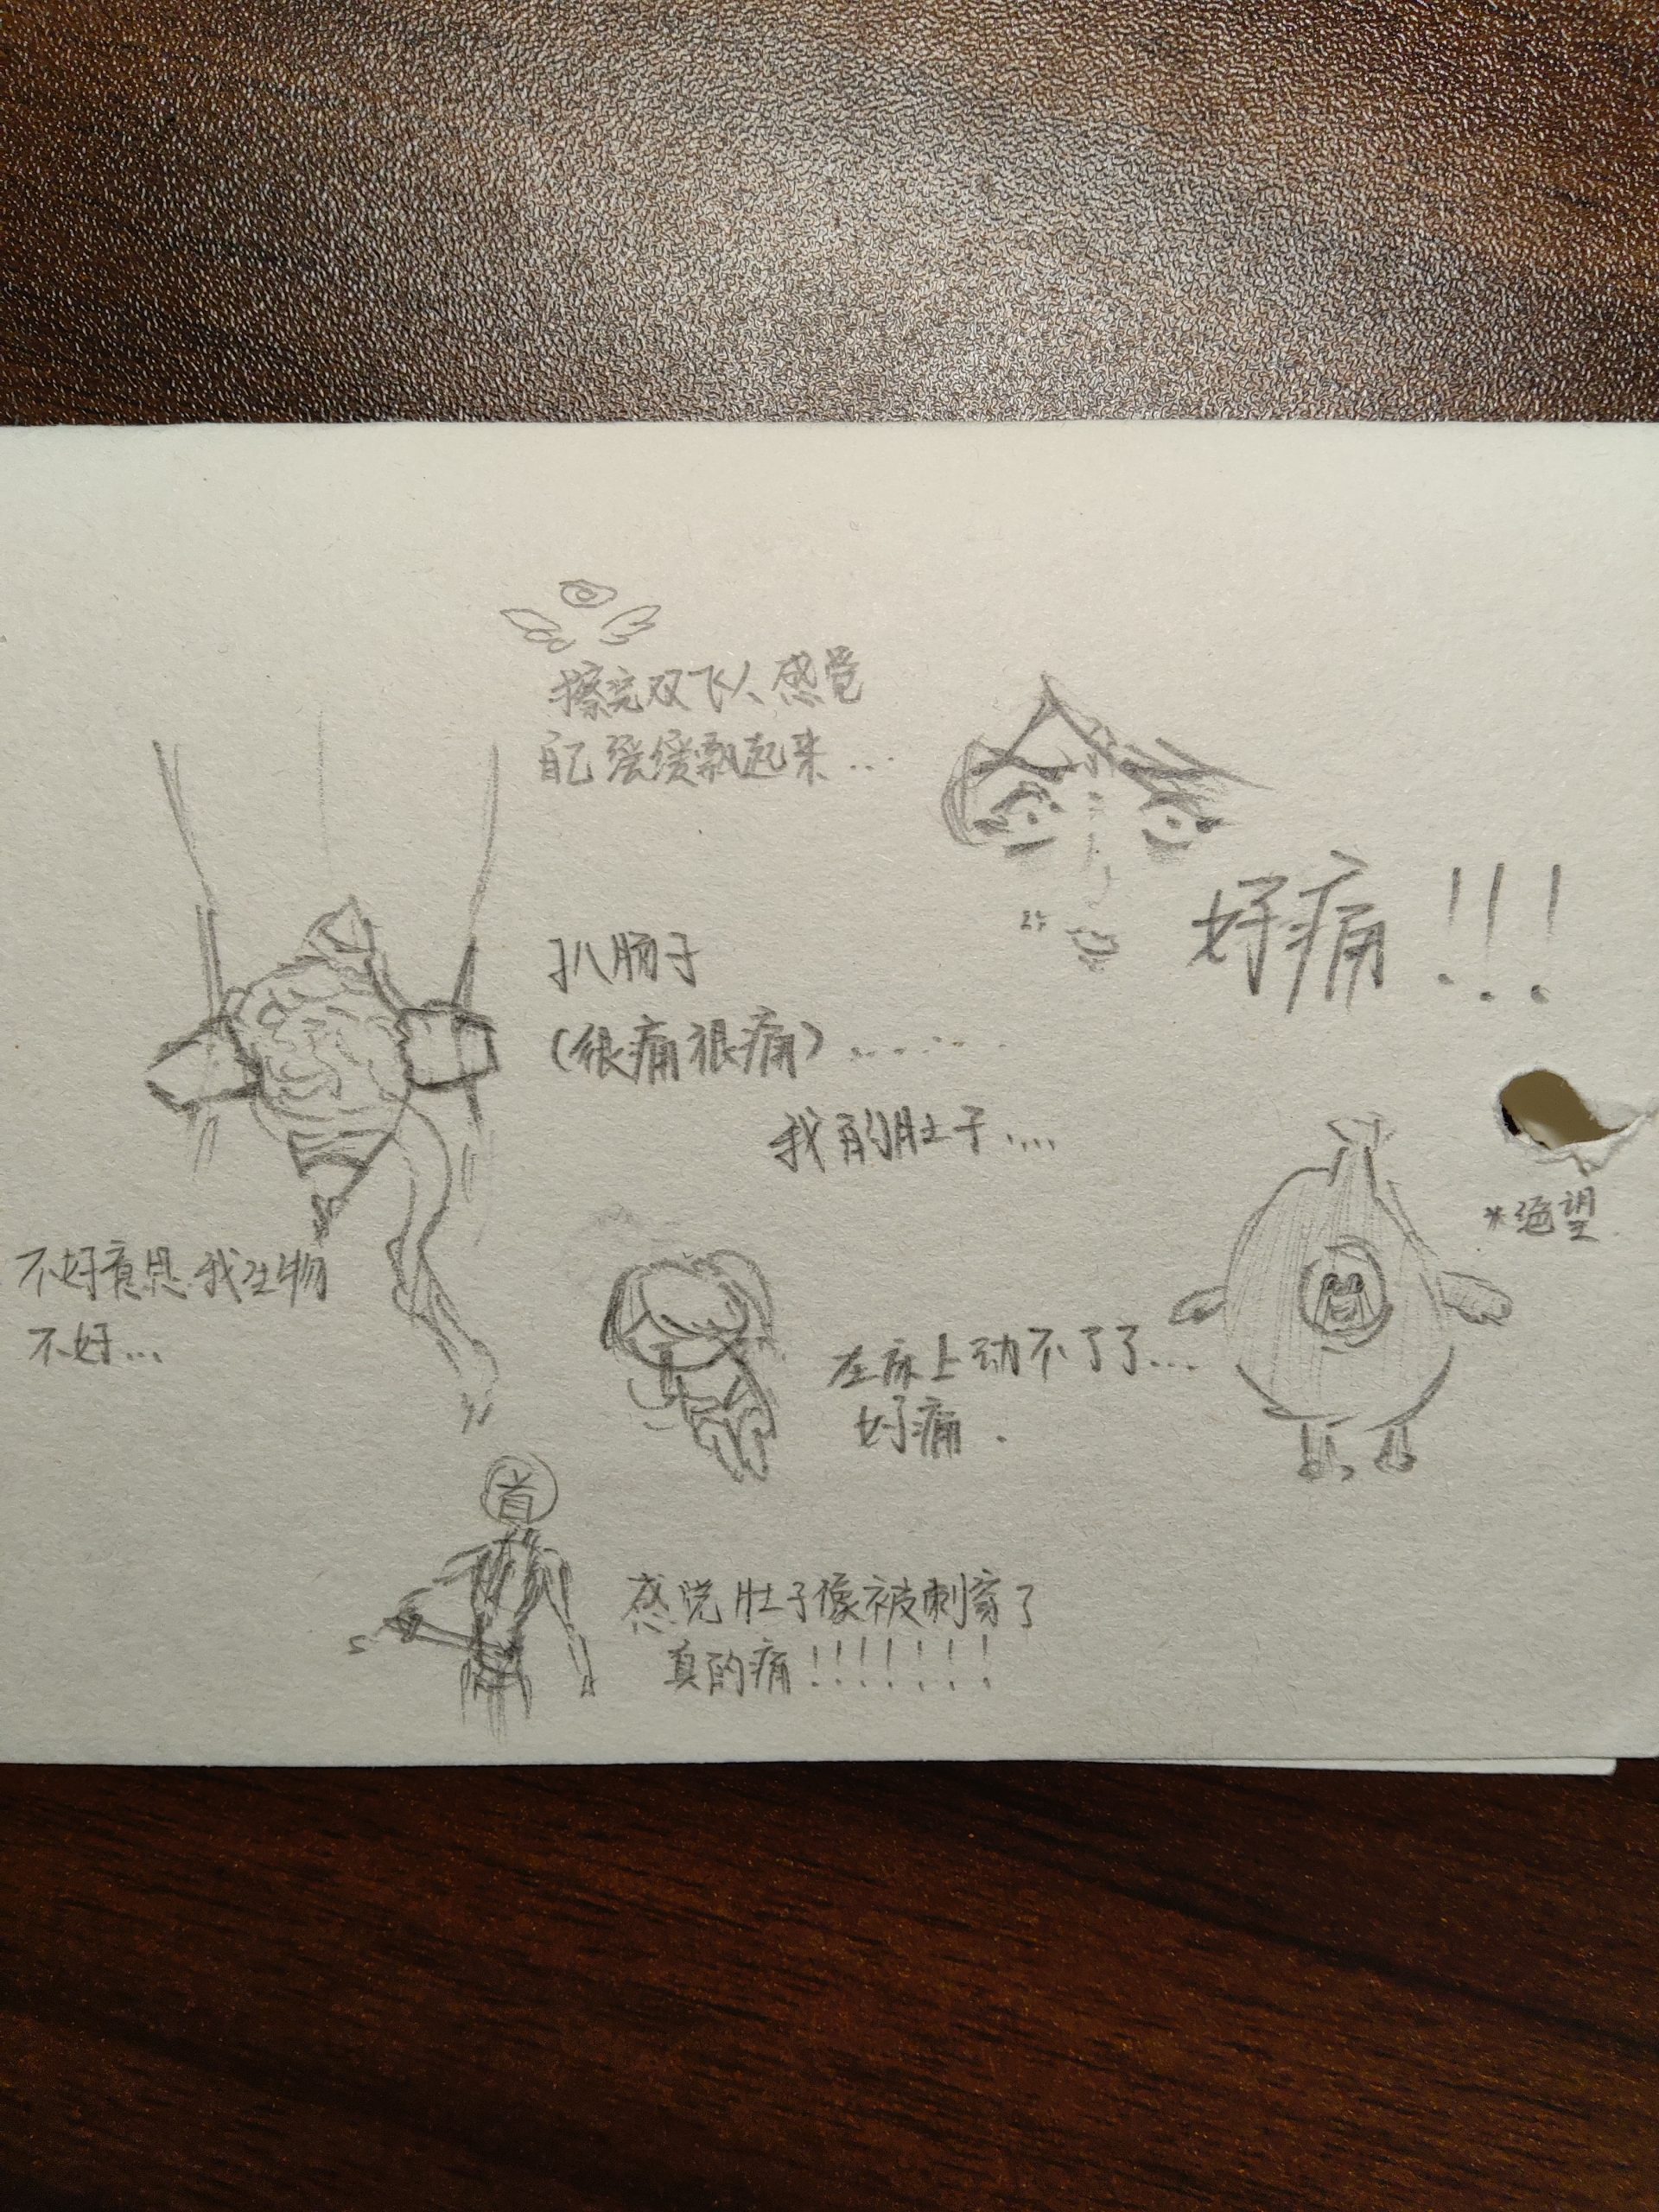 擦完双飞人感觉
自己缓缓飘起来…
好痛！！！
扒肠子
(很痛很痛)……
我的肚子….
*绝望
不好意思 我生物
不好…
在床上动不了了…
好痛.
首
感觉肚子像被刺穿了
真的痛!!!!!!!